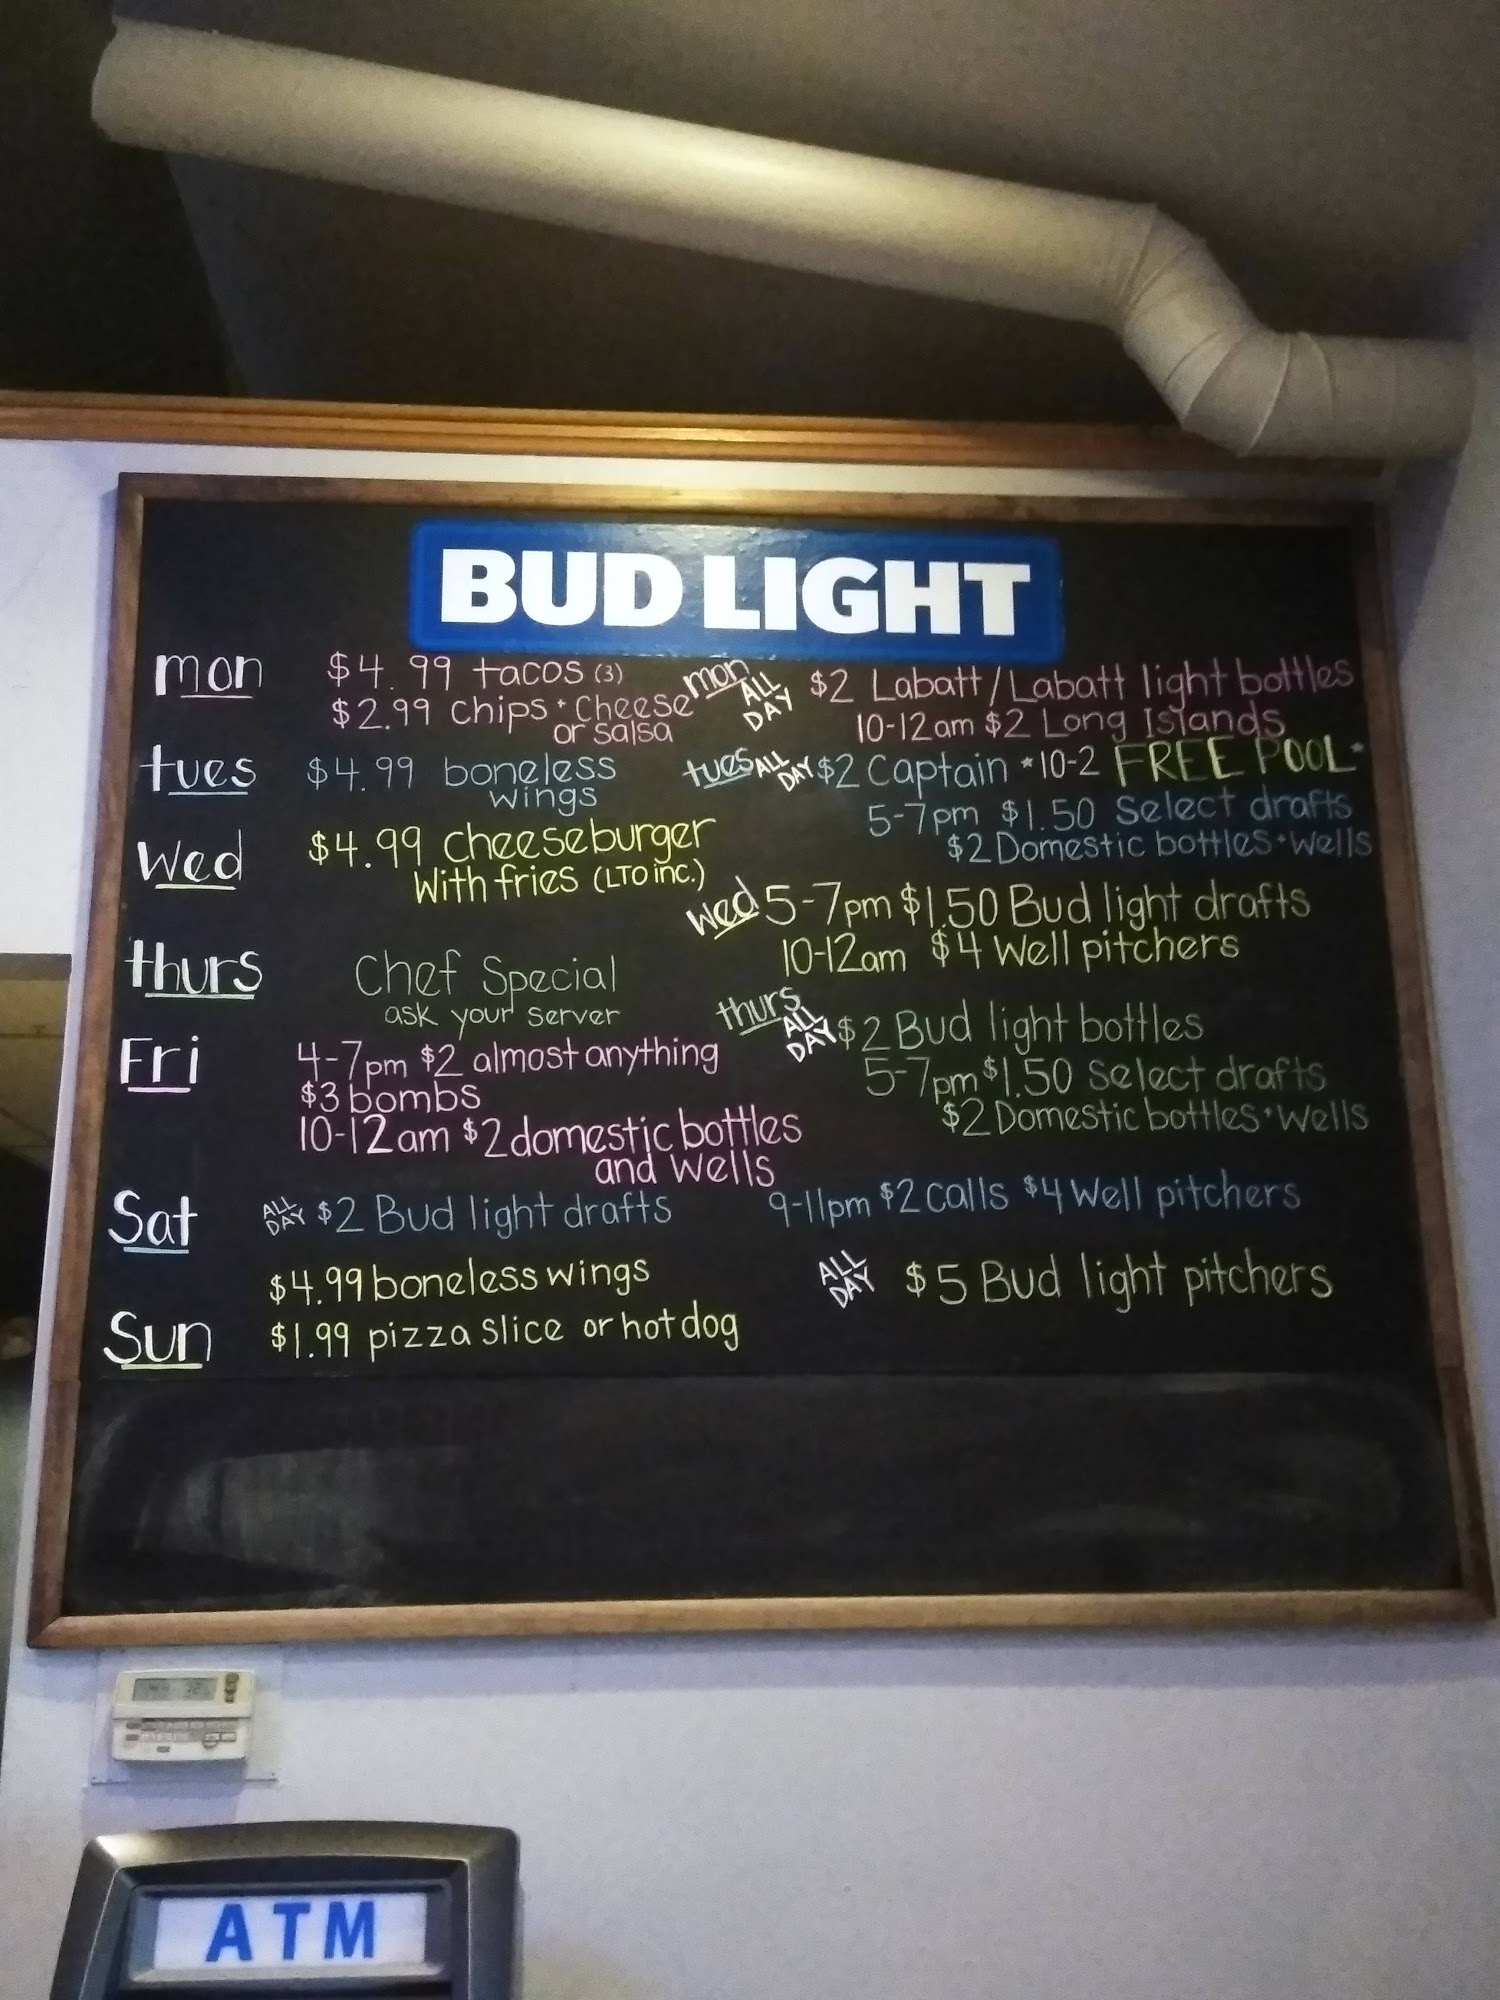 BUD LIGHT
mon
$4.99 tacos (3)
$2.99 chips + cheese
or salsa
mon
ALL
DAY
$2 Labatt/Labatt light bottles
10-12am $2 Long Islands
tues
$4.99 boneless
wings
tues
ALL
DAY
$2 Captain *10-2 FREE POOL*
5-7pm $1.50 Select drafts
$2 Domestic bottles + wells
Wed
$4.99 cheeseburger
With fries (LTO inc.)
Wed
5-7pm $1.50 Bud light drafts
10-12am $4 Well pitchers
thurs
Chef Special
ask your server
thurs
ALL
DAY
$2 Bud light bottles
5-7pm $1.50 Select drafts
$2 Domestic bottles + wells
Fri
4-7pm $2 almost anything
$3 bombs
10-12am $2 domestic bottles
and wells
Sat
ALL
DAY
$2 Bud light drafts
9-11pm $2 calls $4 Well pitchers
Sun
$4.99 boneless wings
$1.99 pizza slice or hot dog
ALL
DAY
$5 Bud light pitchers
ATM